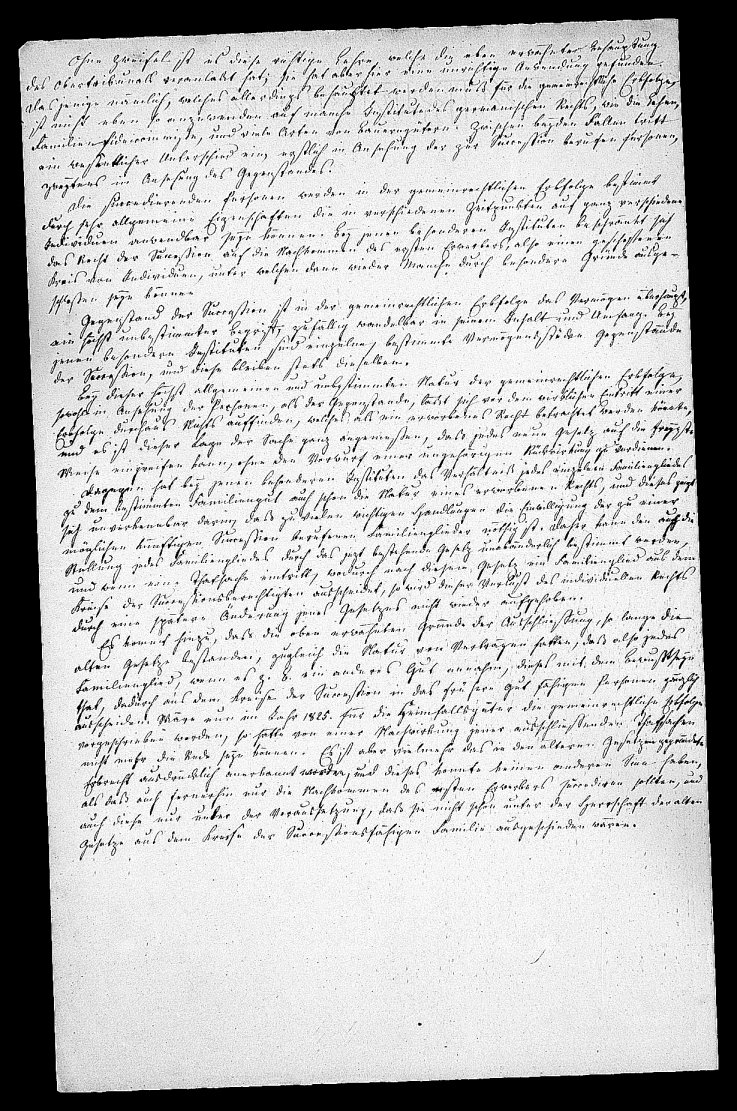 Ohne Zweifel ist es diese richtige Lehre, welche die eben erwähnte Behauptung
des Obertribunals veranlaßt hat; sie hat aber hier eine unrichtige Anwendung gefunden.
Dasjenige nämlich, welches allerdings behauptet werden muß für die gemeinrechtliche Erbfolge,
ist nicht eben so anzuwenden auf manche Institute des germanischen Rechts, wie die Lehen,
Familienfideicommisse, und viele Arten von Bauerngütern. Zwischen beyden Fällen tritt
ein wesentlicher Unterschied ein, erstlich in Ansehung der zur Succession berufenen Personen,
zweytens in Ansehung des Gegenstandes.
Die succedierenden Personen werden in der gemeinrechtlichen Erbfolge bestimmt
durch sehr allgemeine Eigenschaften die in verschiedenen Zeitpunkten auf ganz verschiedene
Individuen anwendbar seyn können: bey jenen besonderen Instituten beschränkt sich
das Recht der Succession auf die Nachkommen des ersten Erwerbers, also einen geschlossenen
Kreis von Individuen, unter welchen dann wieder Manche durch besondere Gründe ausge-
schlossen seyn können.
Gegenstand der Succession ist in der gemeinrechtlichen Erbfolge das Vermögen überhaupt,
ein höchst unbestimmter Begriff, zufällig wandelbar in seinem Inhalt und Umfang: bey
jenen besondern Instituten sind einzelne, bestimmte Vermögensstücke Gegenstände
der Succession, und diese bleiben stets dieselben.
Bey dieser höchst allgemeinen und unbestimmten Natur der gemeinrechtlichen Erbfolge,
sowohl in Ansehung der Personen, als der Gegenstände, läßt sich vor dem wirklichen Eintritt einer
Erbfolge durchaus Nichts auffinden, welches als ein erworbenes Recht betrachtet werden könnte,
und es ist dieser Lage der Sache ganz angemessen, daß jedes neue Gesetz auf die freyeste
Weise eingreifen kann, ohne den Vorwurf einer ungehörigen Rückwirkung zu verdienen.
Dagegen hat bey jenen besonderen Instituten das Verhältniß jedes einzelnen Familiengliedes
zu dem bestimmten Familiengut auch schon die Natur eines erworbenen Rechts, und dieses zeigt
sich unverkennbar darin, daß zu vielen wichtigen Handlungen die Einwilligung der zu einer
möglichen künftigen Succession berufenen Familienglieder nöthig ist. Daher kann denn auch die
Stellung jedes Familiengliedes durch das jetzt bestehende Gesetz unabänderlich bestimmt werden,
und wenn eine Thatsache eintritt, wodurch nach diesem Gesetz ein Familienglied aus dem
Kreise der Successionsberechtigten ausscheidet, so wird dieser Verlust des individuellen Rechts
durch eine spätere Änderung jenes Gesetzes nicht wieder aufgehoben.
Es kommt hinzu, daß die oben erwähnten Gründe der Ausschließung, so lange die
alten Gesetze bestanden, zugleich die Natur von Verträgen hatten, daß also jedes
Familienglied, wenn es z. B. ein anderes Gut annahm, dieses mit dem Bewußtseyn
that, dadurch aus dem Kreise der Succession in das frühere Gut fähigen Personen gänzlich
auszuscheiden. Wäre nun im Jahr 1825. für die Heimfallsgüter die gemeinrechtliche Erbfolge
vorgeschrieben worden, so hätte von einer Nachwirkung jener ausschließenden Thatsachen
nicht mehr die Rede seyn können. Es ist aber vielmehr das in den älteren Gesetzen gegründete
Erbrecht ausdrücklich anerkannt worden, und dieses konnte keinen anderen Sinn haben,
als daß auch fernerhin nur die Nachkommen des ersten Erwerbers succediren sollten, und
auch diese nur unter der Voraussetzung, daß sie nicht schon unter der Herrschaft der alten
Gesetze aus dem Kreise der Successionsfähigen Familie ausgeschieden wären.